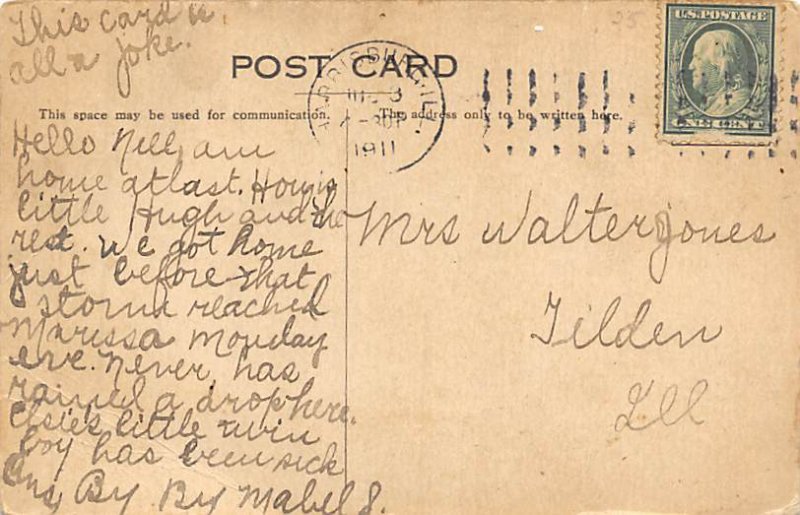 This card is
all a joke.
POST CARD
This space may be used for communication.
The address only to be written here.
HARRISBURG, ILL.
3
1911
U.S. POSTAGE
ONE CENT
25
Hello Nell, am
home at last. How is
little Hugh and the
rest. we got home
just before that
storm reached
Marissa Monday
eve. Never has
rained a drop here.
Elsie's little twin
boy has been sick
Ans, By By Mabel S.
Mrs Walter Jones
Tilden
Ill